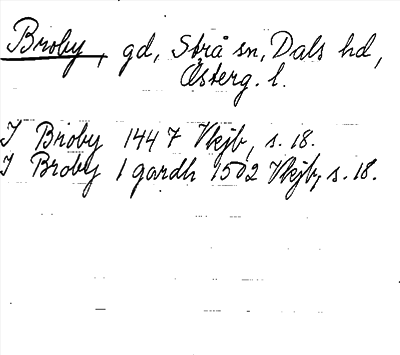 Broby, gd, Strå sn, Dals hd,
Österg. l.
I Broby 1447 Vkjb, s. 18.
I Broby 1 gardh 1502 Vkjb, s. 18.